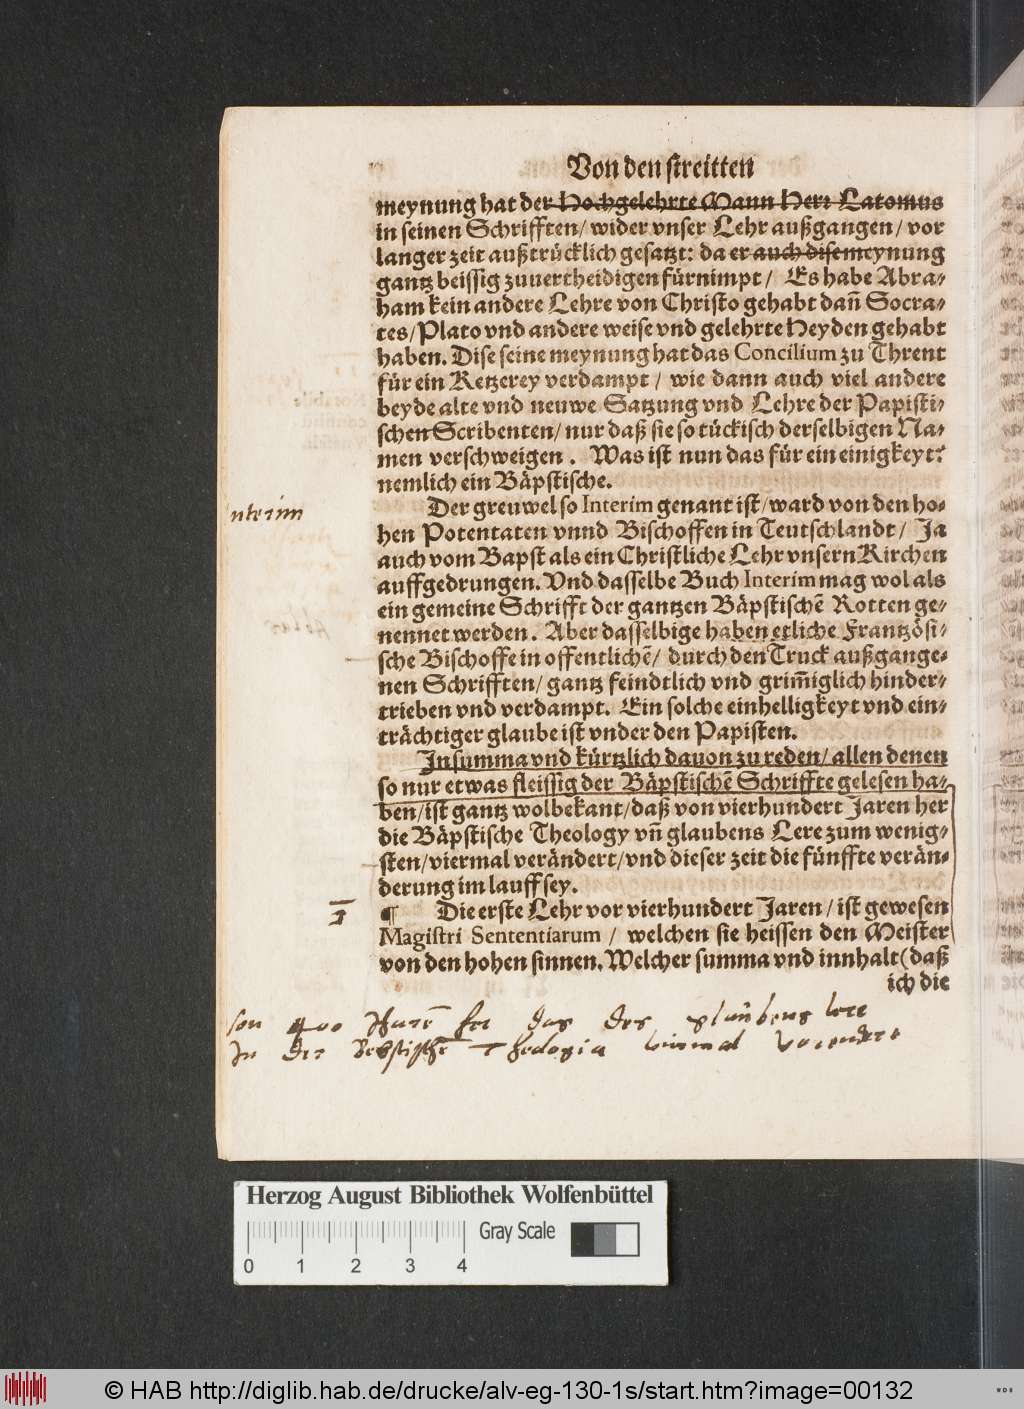 Von den streitten
meynung hat der Hochgelehrte Mann Herr Latomus
in seinen Schrifften/ wider vnser Lehr außgangen/ vor
langer zeit außtrücklich gesatzt: da er auch dise meynung
gantz beissig zuuertheidigen fürnimpt/ Es habe Abra⸗
ham kein andere Lehre von Christo gehabt dañ Socra⸗
tes/Plato vnd andere weise vnd gelehrte Heyden gehabt
haben. Dise seine meynung hat das Concilium zu Thrent
für ein Ketzerey verdampt / wie dann auch viel andere
beyde alte vnd neuwe Satzung vnd Lehre der Papisti⸗
schen Scribenten/ nur daß sie so tückisch derselbigen Na⸗
men verschweigen. Was ist nun das für ein einigkeyt?
nemlich ein Bäpstische.
nterim
Der greuwel so Interim genant ist/ward von den ho⸗
hen Potentaten vnnd Bischoffen in Teutschlandt/ Ja
auch vom Bapst als ein Christliche Lehr vnsern Kirchen
auffgedrungen. Vnd dasselbe Buch Interim mag wol als
ein gemeine Schrifft der gantzen Bäpstischẽ Rotten ge⸗
nennet werden. Aber dasselbige haben etliche Frantzösi⸗
sche Bischoffe in offentlichẽ/ durch den Truck außgange⸗
nen Schrifften/ gantz feindtlich vnd grim̃iglich hinder⸗
trieben vnd verdampt. Ein solche einhelligkeyt vnd ein⸗
trächtiger glaube ist vnder den Papisten.
In summa vnd kürtzlich dauon zu reden/ allen denen
so nur etwas fleissig der Bäpstischẽ Schriffte gelesen ha⸗
ben/ist gantz wolbekant/daß von vierhundert Jaren her
die Bäpstische Theology vñ glaubens Lere zum wenig⸗
sten/viermal verändert/vnd dieser zeit die fünffte verän⸗
derung im lauff sey.
¶ Die erste Lehr vor vierhundert Jaren/ ist gewesen
Magistri Sententiarum / welchen sie heissen den Meister
von den hohen sinnen. Welcher summa vnd innhalt (daß
ich die
400 das des glaubens lere
In der Bebstischẽ Thedogia
Herzog August Bibliothek Wolfenbüttel
Gray Scale
0 1 2 3 4
© HAB http://diglib.hab.de/drucke/alv-eg-130-1s/start.htm?image=00132